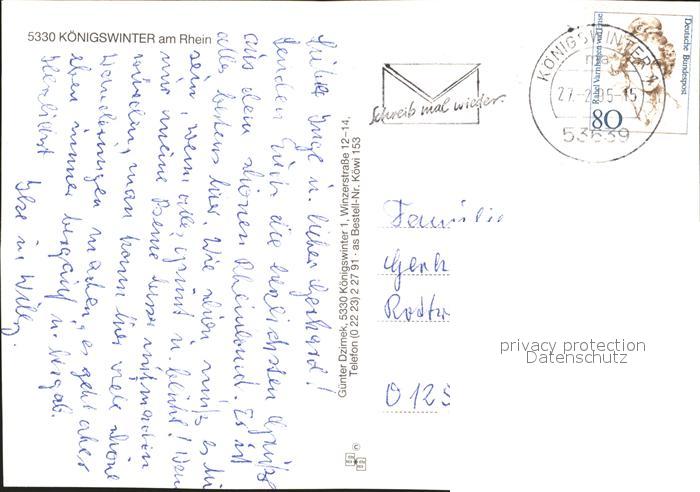 5330 KÖNIGSWINTER am Rhein
Liebe Inge u. lieber Gerhard!
Senden Euch die herzlichsten Grüße
aus dem schönen Rheinland. Es ist
alles bestens hier. Wie schön muß es hier
sein, wenn alles grünt u. blüht! Wenn
nur meine Beine besser mitmachen
würden, man kann hier viele schöne
Wanderungen machen, es geht aber
eben immer bergauf u. bergab.
Herzlichst Ilse u. Willy.
Günter Dzimek, 5330 Königswinter 1, Winzerstraße 12–14,
Telefon (0 22 23) 2 27 91 · as Bestell-Nr. Köwi 153
Schreib mal wieder.
KÖNIGSWINTER 1
ma
27.-2.95-15
53639
Rahel Varnhagen von Ense
Deutsche Bundespost
80
Familie
Gerh
Rodtw
O 125
privacy protection
Datenschutz